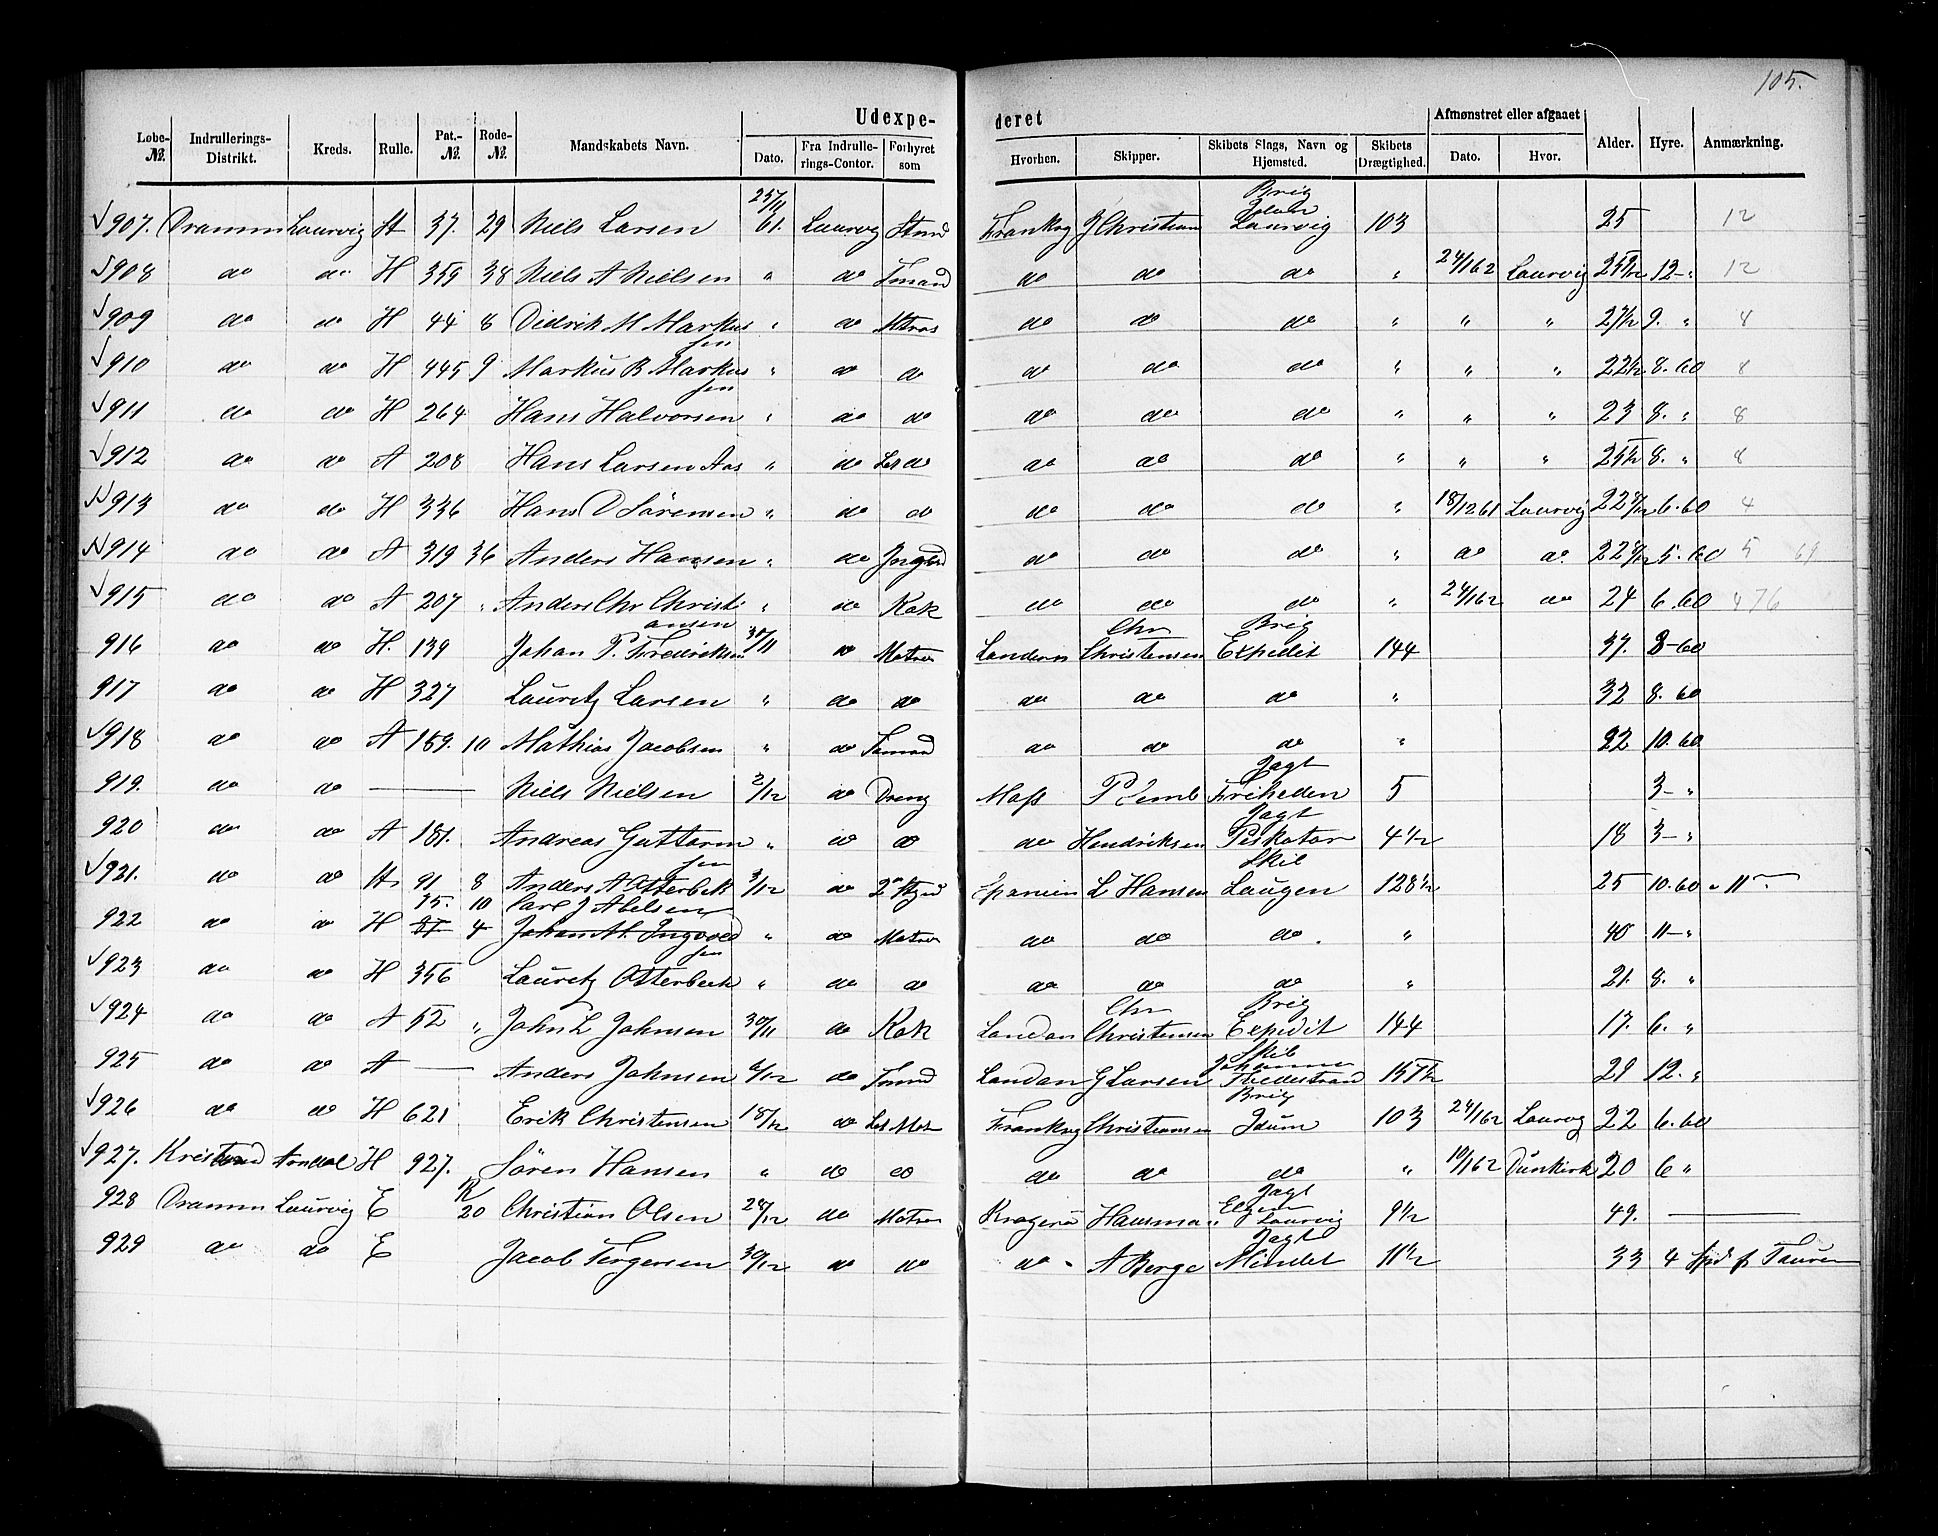 105.
Udexpederet
Afmønstret eller afgaaet
Løbe-№. Indrullerings-Distrikt. Kreds. Rulle. Pat.-№. Rode-№. Mandskabets Navn. Dato. Fra Indrullerings-Contor. Forhyret som Hvorhen. Skipper. Skibets Slags, Navn og Hjemsted. Skibets Drægtighed. Dato. Hvor. Alder. Hyre. Anmærkning.
907. Dramm Laurvig St 37. 29 Niels Larsen 25/11 61. Laurvg Stmd Frankrg J Christian Brig Laurvig 103 25 12
908 do do H 359 38 Niels A Nielsen " do Tmand do do do " 24/1 62 Laurvig 12 - " 12
909 do do H 44 8 Didrik M Markussen " do Mtros do do do " " " 9. " 8
910 do do H 445 9 Markus B Markussen " do do do do do " " " 8. 60 8
911 do do H 264 Hans Halvorsen " do do do do do " " " 23 8. " 8
912 do do A 208 Hans Larsen Aas " do Let do do do do " " " 8. " 8
913 do do H 336 Hans D Sörensen " do do do do do " 18/12 61 Laurvig 6. 60 4
914 do do A 319 36 Anders Hansen " do Jngmd do do do " do do. 5. 60 5 69
915 do do A 207 " Anders Chr Christiansen " do Kok do do do " 24/1 62 do 24 6. 60 476
916 do do H. 139 Johan P. Fredriksen 30/11 do Matros London Chr Christensen Brig Expedit 144 37. 8 - 60
917 do do H 327 Lauritz Larsen " do do do do do " 32 8. 60
918 do do A 189. 10 Mathias Jacobsen " do Tmand do do do " 22 10. 60
919. do do — Niels Nielsen 2/12 do Dreng Moss P Jagt Friheden 5 3 - "
920 do do A 181. Andreas Guttormsen " do do do Hendriksen Jagt Piskator 4 1/2 18 3 - "
921. do do St 91 8 Anders A Otterbek 3/12 do Spanien L Hansen Skib Laugen 128 1/2 25 10. 60 " 11
922 do do H 95. 10 Carl J Abelsen 4 Johan M. Ingvoldsen " do Matros do do do. " 40 11 - "
923 do do H 356 Lauritz Otterbeck " do do do do do " 21. 8. "
924 do do A 52 " John L Johnsen 30/11 do Kok London Chr Christensen Brig Expedit 144 17. 6. "
925 do do A — Anders Johnsen 6/12 do Tmand London G Larsen Skib Johanne Thvedestrand 29 12. "
926 do do H 621 Erik Christensen 18/12 do Let Mat Frankrg Christiansen Brig Idum 103 24/1 62 Laurvg 22 6. 60
927. Kristsand Arndal H 927. Sören Hansen " do do do do do " 10/1 62 Dünkirk 20 6 "
928 Dramm Laurvig E 20 Christian Olsen 28/12 do Matros Kragerö Hansman Jagt Laurvig 9 1/2 49. —
929 do do E Jacob Torgersen 30/12 do do do " A Berge Jagt Mindet 11 1/2 33 4 Spd